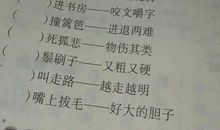 )进书房——咬文嚼字
)撞篱笆——进退两难
)死狐悲——物伤其类
)鬃刷子——又粗又硬
)叫走路——越走越明
)嘴上拔毛——好大的胆子